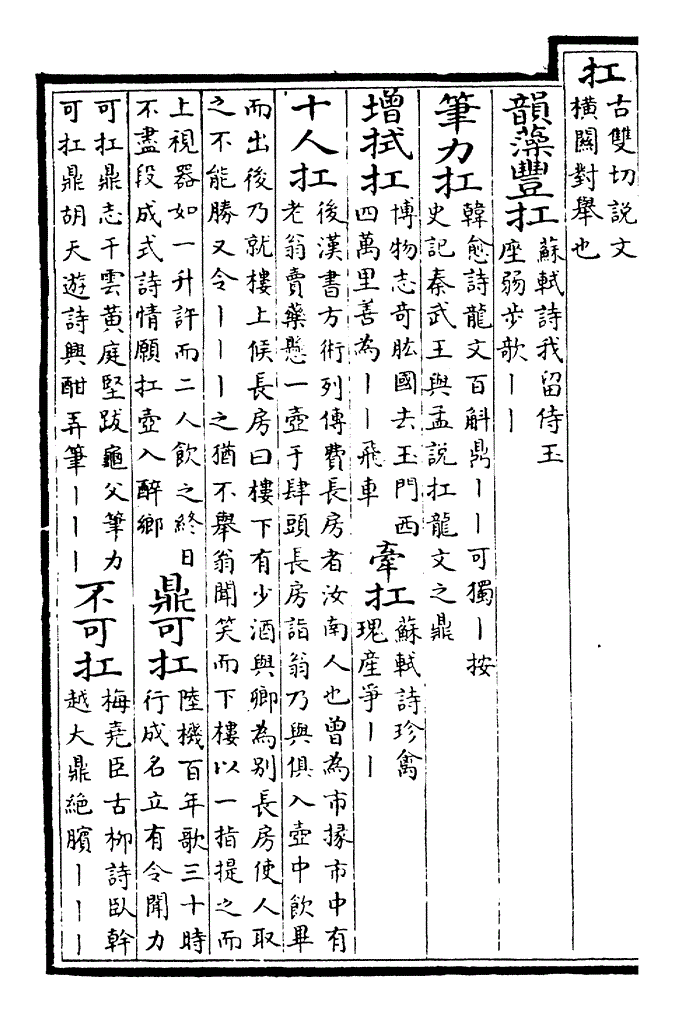 扛
古雙切説文
橫關對舉也
韻藻豐扛
蘇軾詩我留侍玉
座弱步歌丨丨
筆力扛
韓愈詩龍文百斛鼎丨丨可獨丨按
史記秦武王與孟説扛龍文之鼎
增拭扛
博物志奇肱國去玉門西
四萬里善為丨丨飛車
牽扛
蘇軾詩珍禽
瑰産爭丨丨
十人扛
後漢書方術列傳費長房者汝南人也曾為市掾市中有
老翁賣藥懸一壺于肆頭長房詣翁乃與俱入壺中飲畢
而出後乃就樓上候長房曰樓下有少酒與卿為别長房使人取
之不能勝又令丨丨丨之猶不舉翁聞笑而下樓以一指提之而
上視器如一升許而二人飲之終日
不盡段成式詩情願扛壺入醉鄉
鼎可扛
陸機百年歌三十時
行成名立有令聞力
可扛鼎志干雲黄庭堅跋龜父筆力
可扛鼎胡天遊詩興酣弄筆丨丨丨
不可扛
梅堯臣古柳詩臥幹
越大鼎絶臏丨丨丨